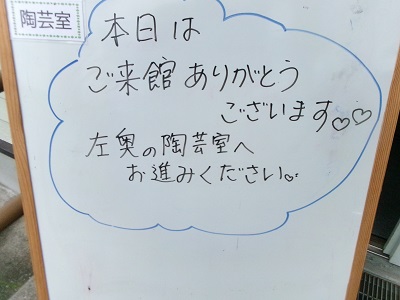 陶芸室
本日は
ご来館ありがとう
ございます♡♡
左奥の陶芸室へ
お進みください♡